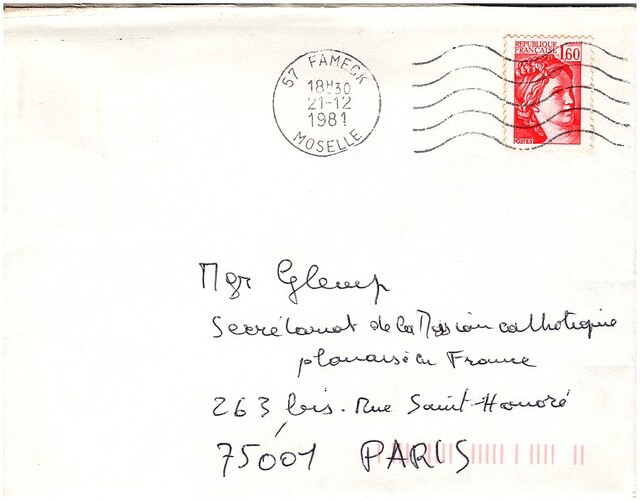 57 FAMECK
18H30
21-12
1981
MOSELLE
REPUBLIQUE
FRANÇAISE
1,60
POSTES
Mgr Glemp
Secrétariat de la Mission catholique
polonaise en France
263 bis. Rue Saint-Honoré
75001 PARIS